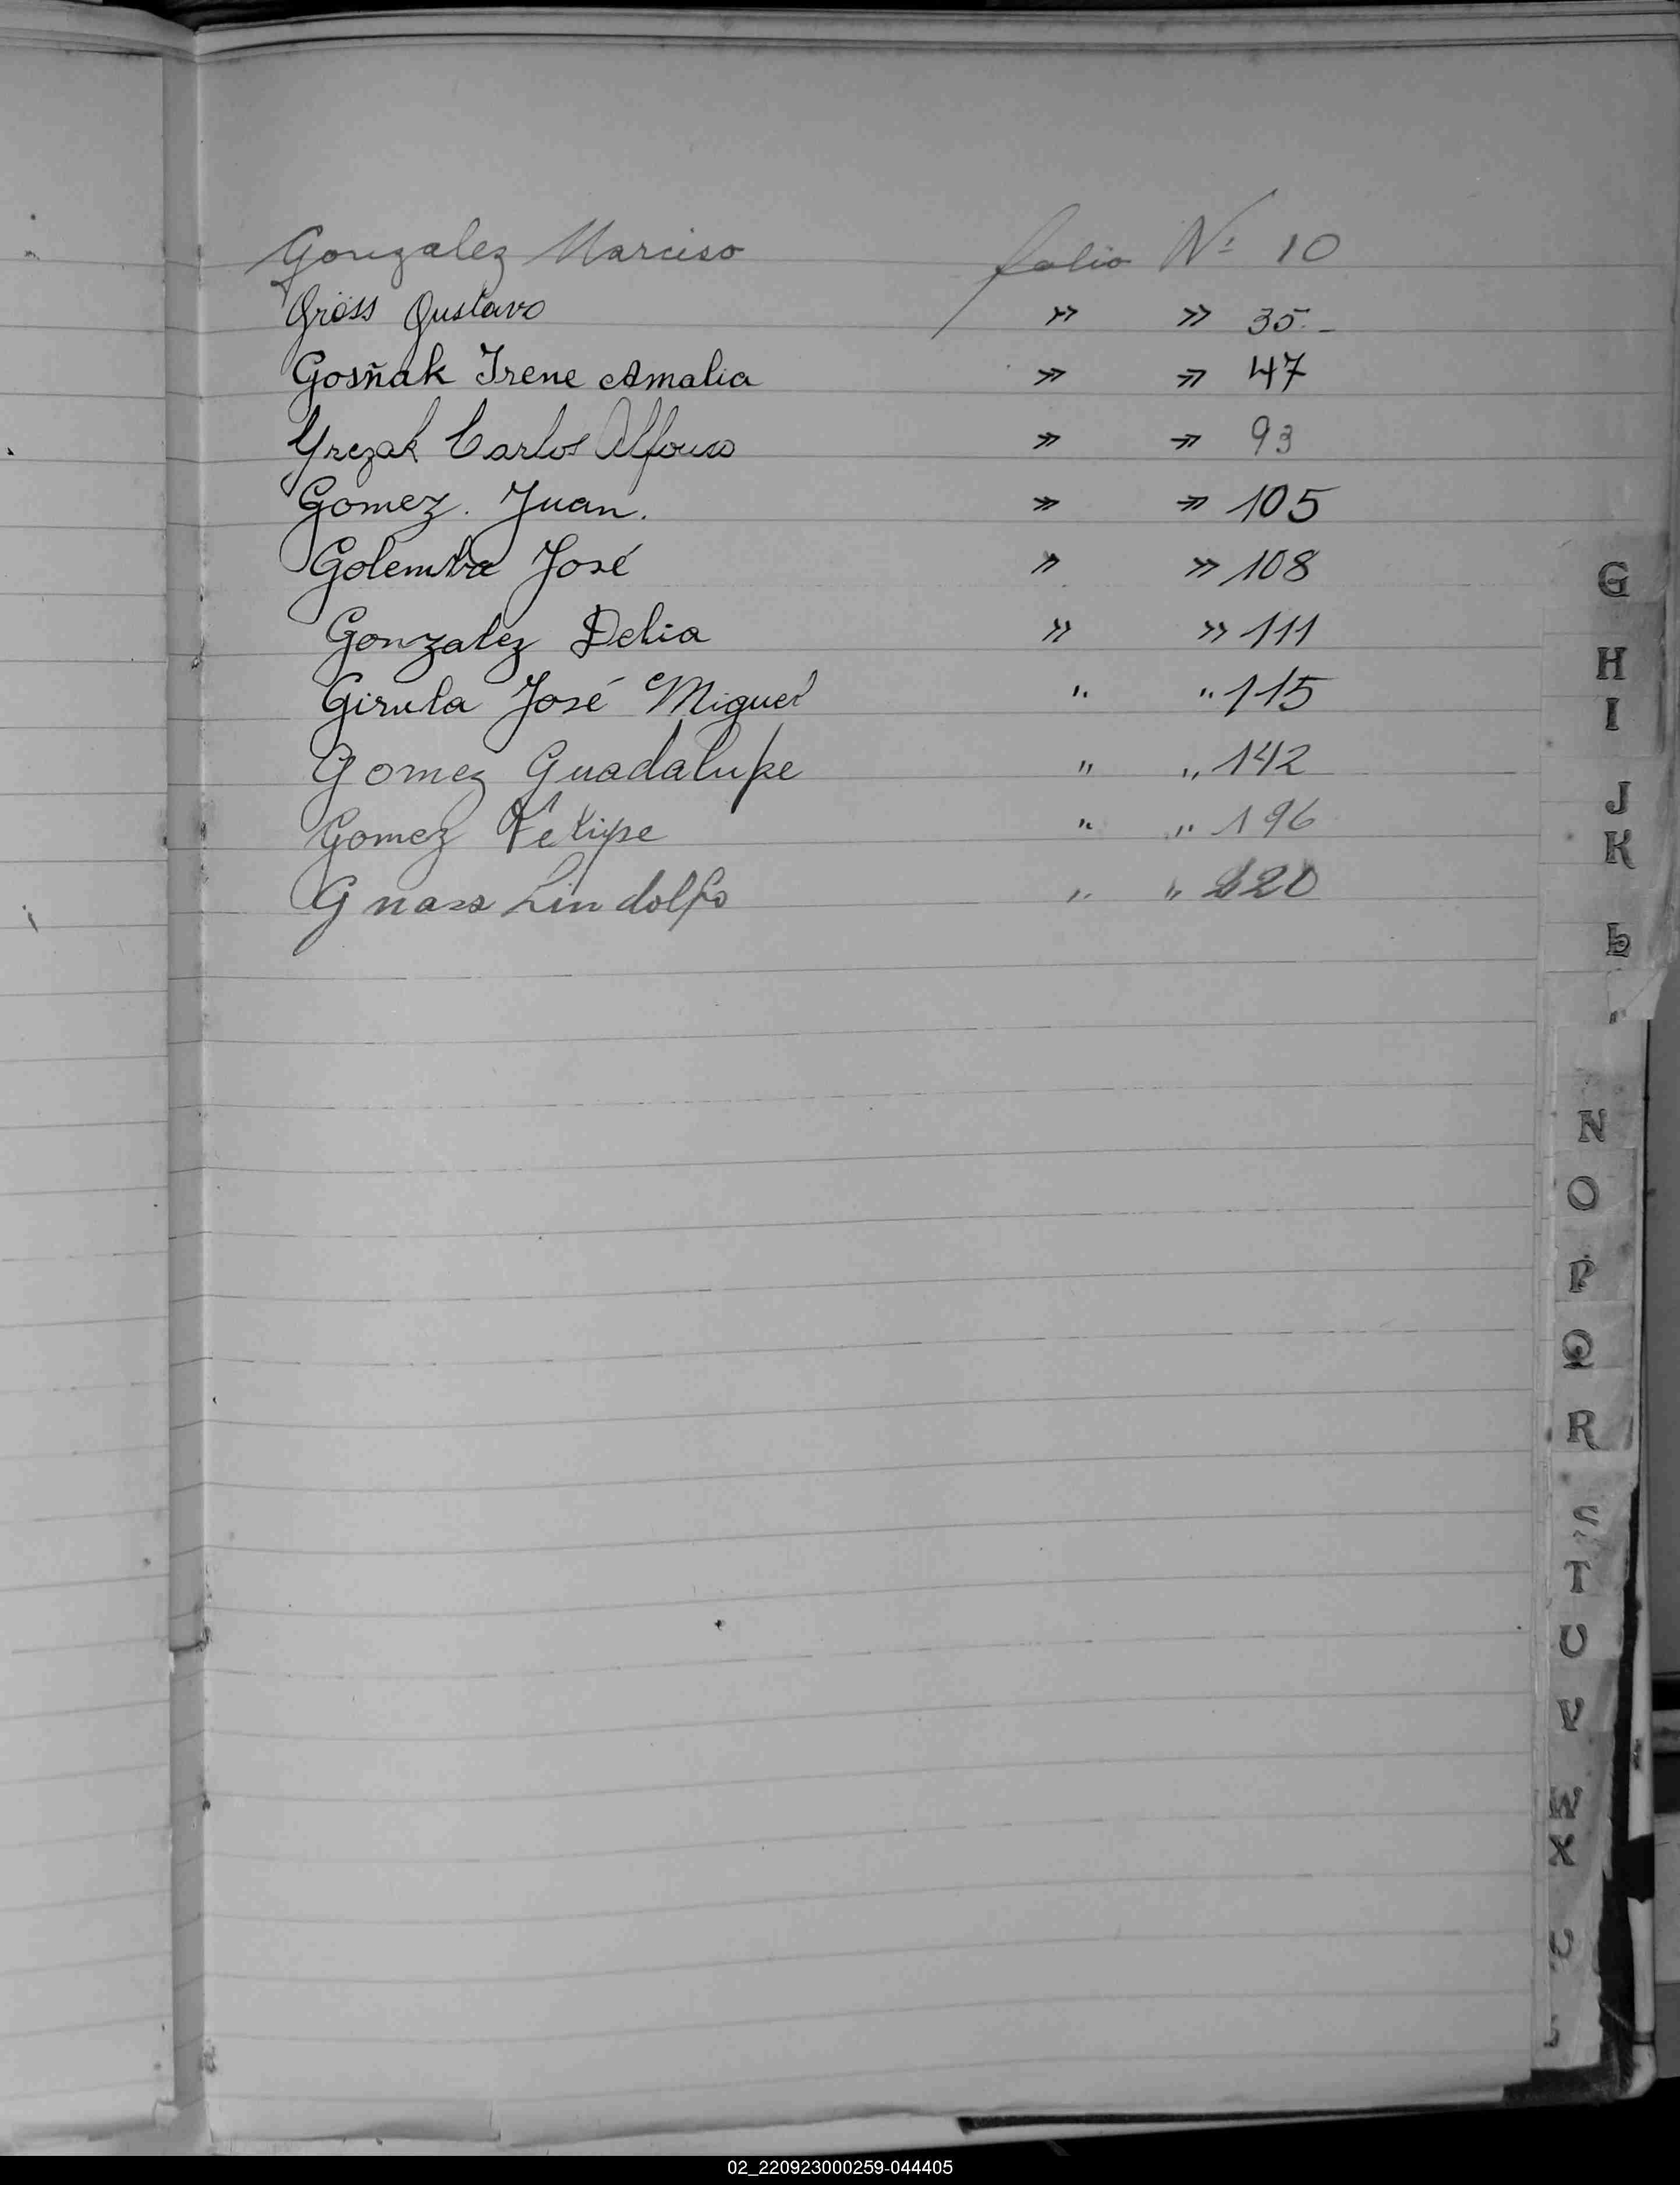 Gonzalez Narciso folio Nº 10
Gröss Gustavo » » 35.-
Gosñak Irene Amalia » » 47
Grezak Carlos Alfonso » » 93
Gomez. Juan. » » 105
Golemba José » » 108
Gonzalez Delia » » 111
Girula José Miguel " " 115
Gomez Guadalupe " " 142
Gomez Felipe " " 196
Gnass Lindolfo " " 220
G
H
I
J
K
L
N
O
P
Q
R
S
T
U
V
W
X
02_220923000259-044405